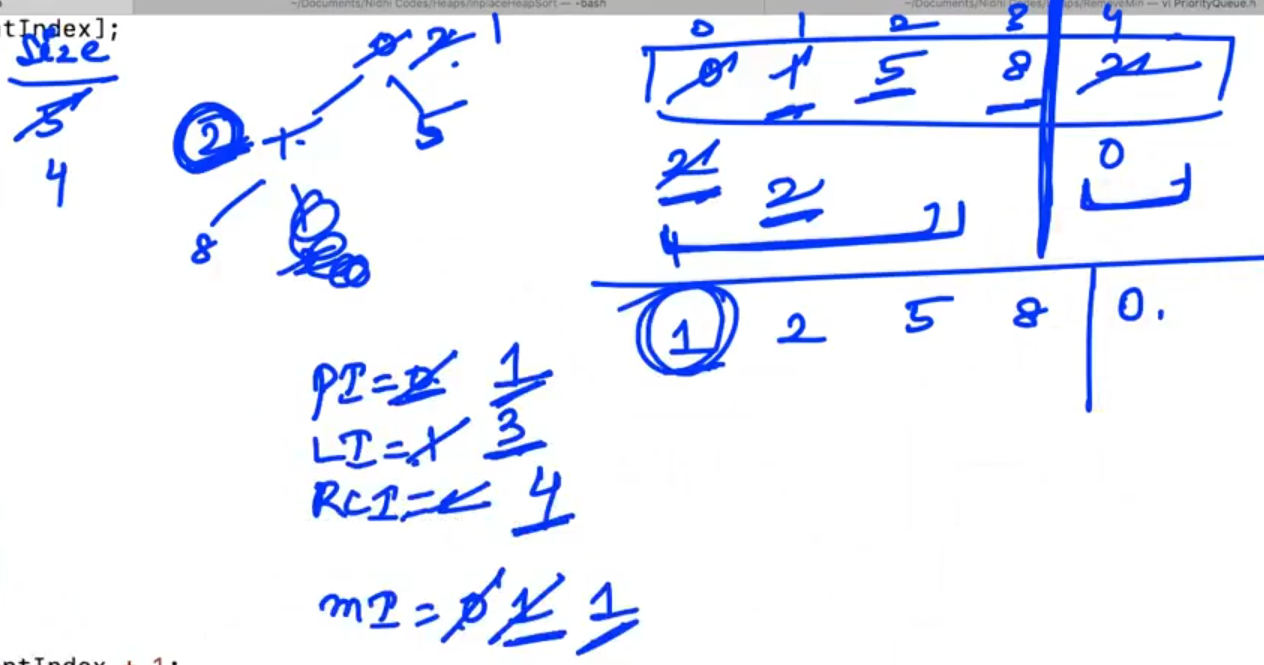 ~/Documents/Nidhi Codes/Heaps/InplaceHeapSort — -bash
~/Documents/Nidhi Codes/Heaps/RemoveMin — vi PriorityQueue.h
ntIndex];
Size
5
4
0 2 1
2 1
5
8
0 1 2 3 4
0 1 5 8 2
2 2 0
4
1 2 5 8 0.
PI = 0 1
LI = 1 3
RCI = 2 4
mI = 0 1 1
ntIndex + 1;